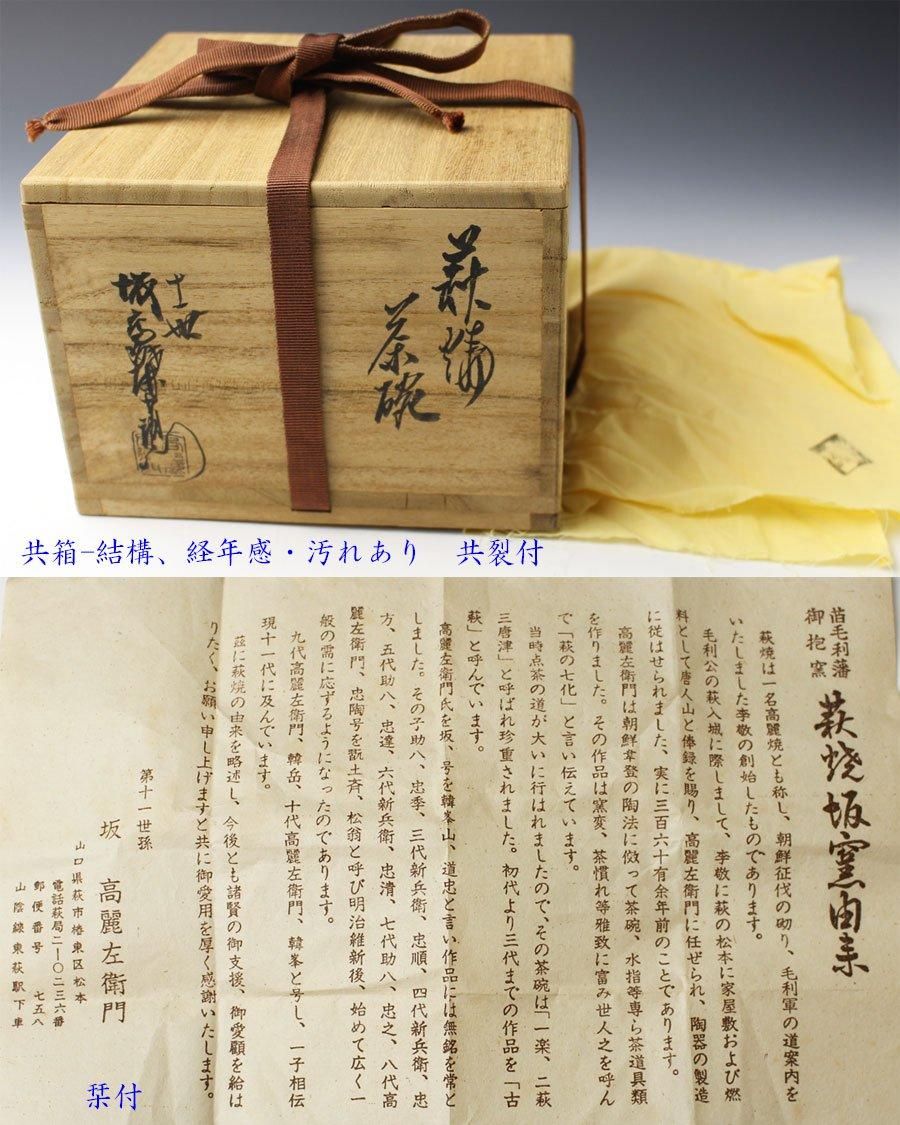 萩焼
茶碗
十一世
坂高麗左衛門
共箱-結構、経年感・汚れあり　共裂付
旧毛利藩
御抱窯
萩焼坂窯由来
萩焼は一名高麗焼とも称し、朝鮮征伐の砌り、毛利軍の道案内を
いたしました李敬の創始したものであります。
毛利公の萩入城に際しまして、李敬に萩の松本に家屋敷および燃
料として唐人山と俸録を賜り、高麗左衛門に任ぜられ、陶器の製造
に従はせられました、実に三百六十有余年前のことであります。
高麗左衛門は朝鮮韋登の陶法に倣って茶碗、水指等専ら茶道具類
を作りました。その作品は窯変、茶慣れ等雅致に富み世人之を呼ん
で「萩の七化」と言い伝えています。
当時点茶の道が大いに行はれましたので、その茶碗は「一楽、二萩
三唐津」と呼ばれ珍重されました。初代より三代までの作品を「古
萩」と呼んでいます。
高麗左衛門氏を坂、号を韓峯山、道忠と言い作品には無銘を常と
しました。その子助八、忠季、三代新兵衛、忠順、四代新兵衛、忠
方、五代助八、忠達、六代新兵衛、忠清、七代助八、忠之、八代高
麗左衛門、忠陶号を翫土斉、松翁と呼び明治維新後、始めて広く一
般の需に応ずるようになったのであります。
九代高麗左衛門、韓岳、十代高麗左衛門、韓峯と号し、一子相伝
現十一代に及んでいます。
茲に萩焼の由来を略述し、今後とも諸賢の御支援、御愛顧を給は
りたく、お願い申し上げますと共に御愛用を厚く感謝いたします。
第十一世孫
坂　高麗左衛門
山口県萩市椿東区松本
電話萩局二―〇二三六番
郵便番号　七五八
山陰線東萩駅下車
栞付